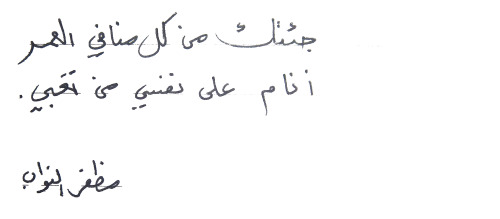 جئتك من كل منافي العمر
أنام على نفسي من تعبي.
مظفر النواب